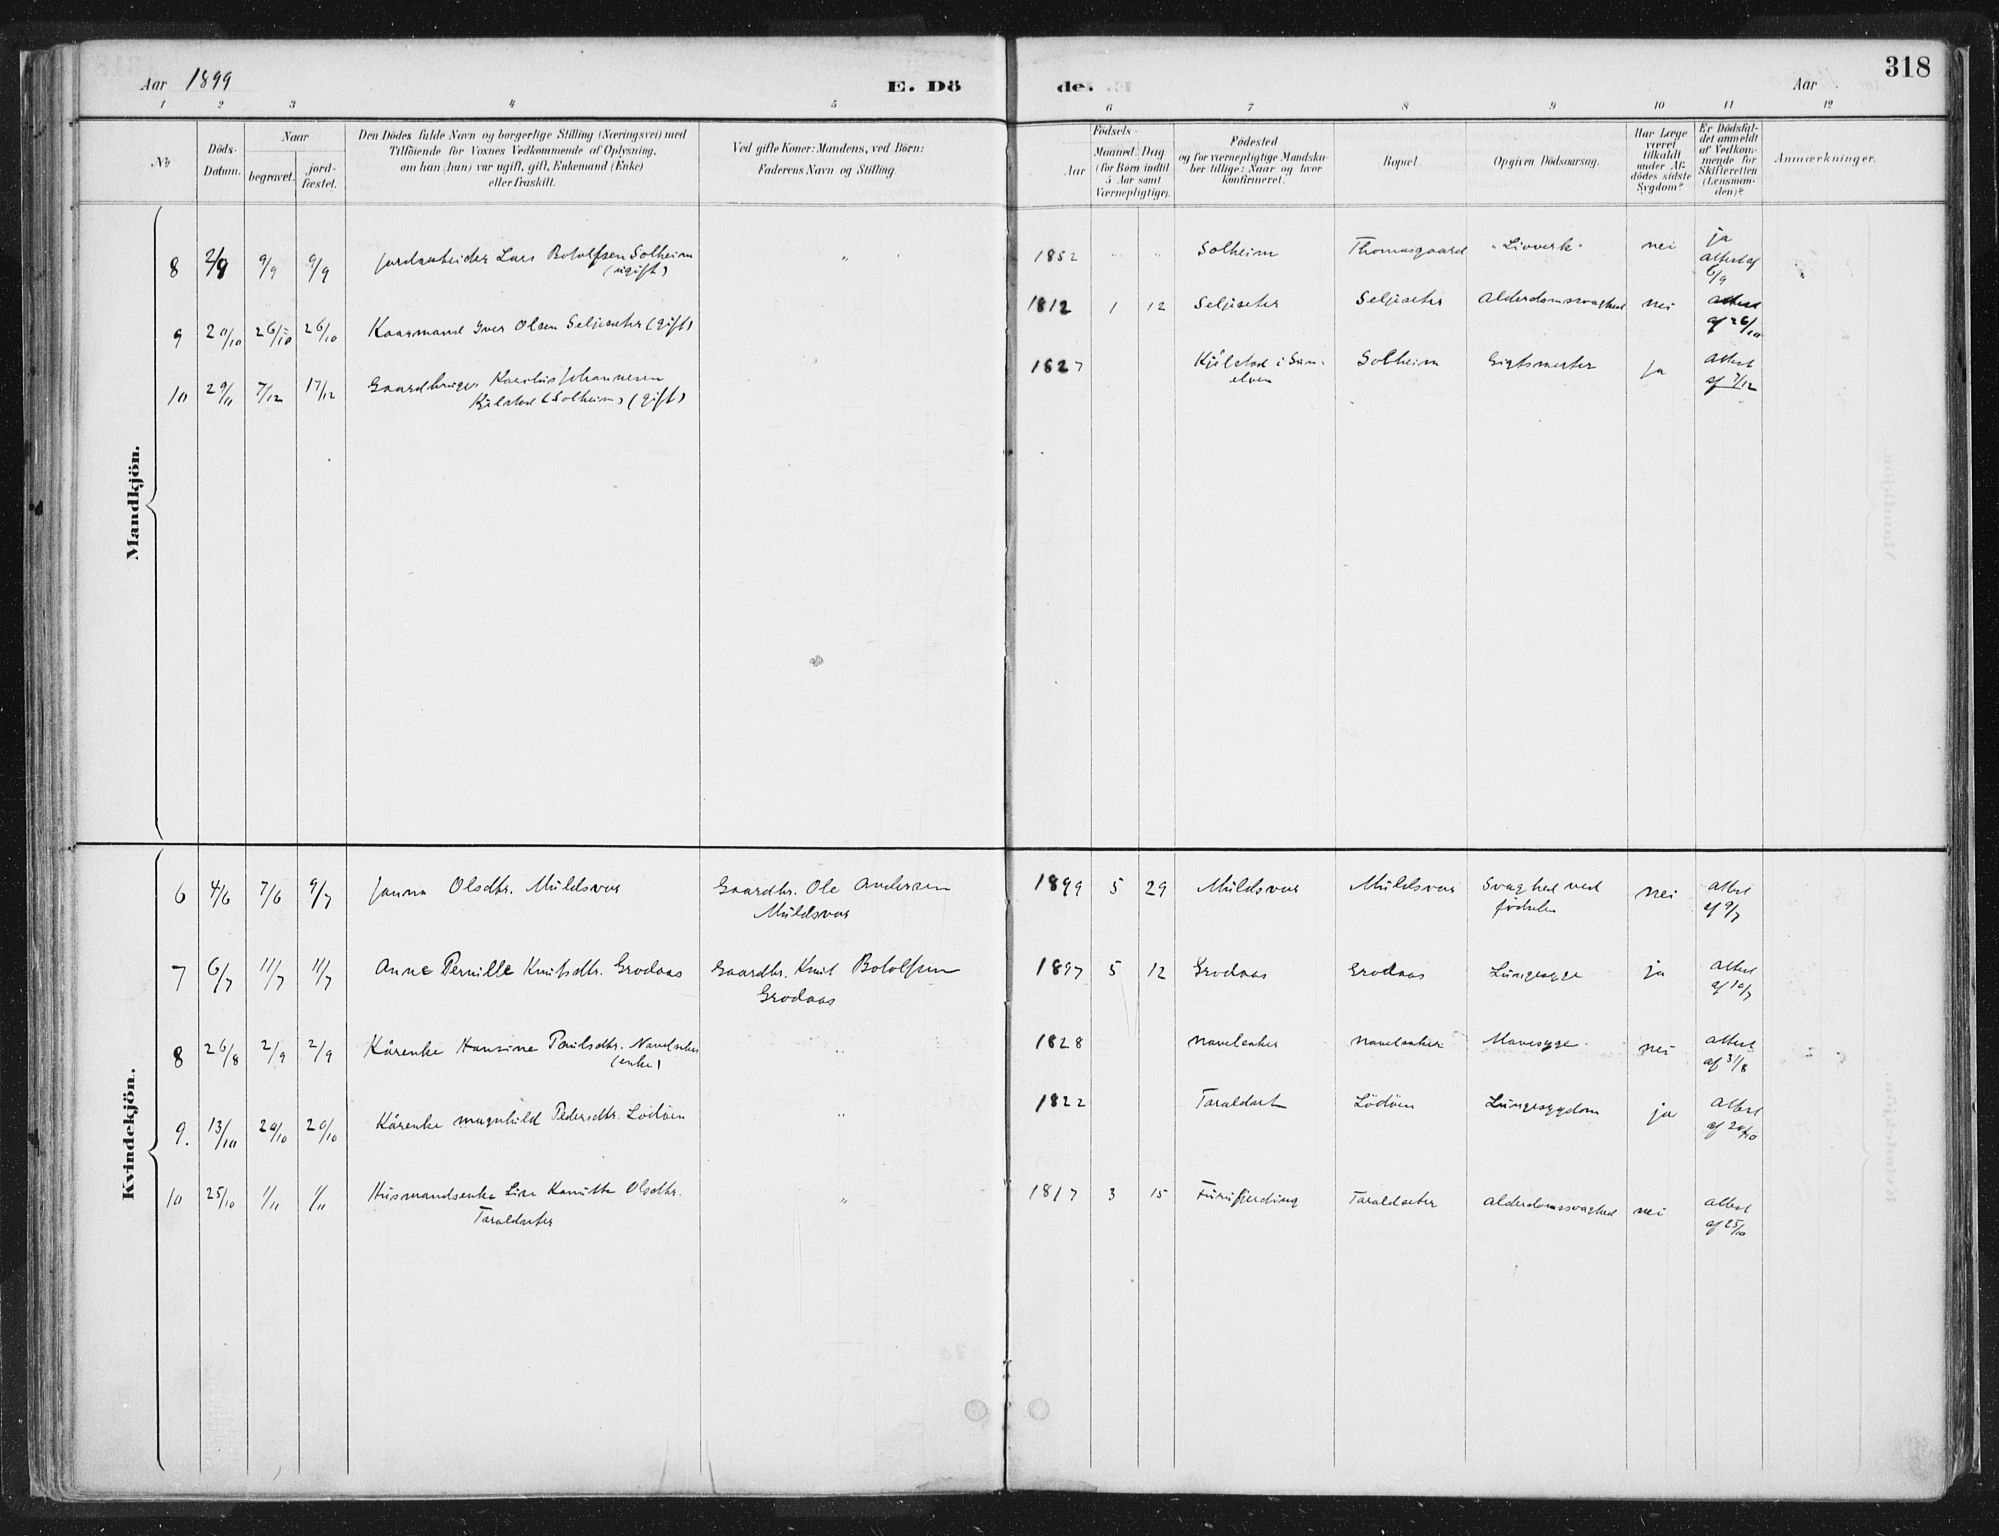 Aar 1899
E. Dö
de.
Aar
318
1 2 3 4 5 6 7 8 9 10 11 12
No
Döds-
Datum.
Naar
begravet.
jord-
fæstet.
Den Dödes fulde Navn og borgerlige Stilling (Næringsvei) med
Tilföiende for Voxnes Vedkommende af Oplysning,
om han (hun) var ugift, gift, Enkemand (Enke)
eller fraskilt.
Ved gifte Koner: Mandens, ved Börn:
Faderens Navn og Stilling.
Födsels-
Aar
Maaned. Dag.
(for Börn indtil
5 Aar samt
Værnepligtige).
Födested
og for værnepligtige Mandska-
ber tillige: Naar og hvor
konfirmeret.
Bopæl.
Opgiven Dödsaarsag.
Har Læge
været
tilkaldt
under Af-
dödes sidste
Sygdom?
Er Dödsfal-
det anmeldt
af Vedkom-
mende for
Skifteretten
(Lensman-
den)?
Anmærkninger.
Mandkjön.
8 2/9 9/9 9/9 Jordarbeider Lars Botolfsen Solheim " 1852 " " Solheim Thomasgaard "Livverk" nei ja
(ugift) attest af
6/9
9 20/10 26/10 26/10 Kaarmand Iver Olsen Seljeseter (gift) 1812 1 12 Seljeseter Seljeseter Alderdomssvaghed nei attest
af 26/10
10 29/11 7/12 17/12 Gaardbruger Karolus Johannesen 1827 Kjelstad i Sun- Solheim Gigtsmerter ja attest
Kjelstad (Solheim) (gift) elven af 7/12
Kvindekjön.
6 4/6 7/6 9/7 Janna Olsdtr. Muldsvor Gaardbr. Ole Andersen 1899 5 29 Muldsvor Muldsvor Svaghed ved nei attest
Muldsvor födselen af 9/7
7 6/7 11/7 11/7 Anne Pernille Knutsdtr. Grodaas Gaardbr. Knut Botolfsen 1897 5 12 Grodaas Grodaas Lungesyge ja attest
Grodaas af 10/7
8 26/8 2/9 2/9 Kårenke Hansine Paulsdtr. Navelsaker " 1828 Navelsaker Navelsaker Mavesyge nei attest
(enke) af 31/8
9. 13/10 20/10 20/10 Kårenke Magnhild Pedersdtr. Lödöen " 1822 Taraldset Lödöen Lungesygdom ja attest
af 20/10
10 25/10 1/11 1/11 Husmandsenke Lise Kanutte Olsdtr. " 1817 3 15 Furufjerding Taraldseter Alderdomssvaghed nei attest
Taraldseter af 25/10